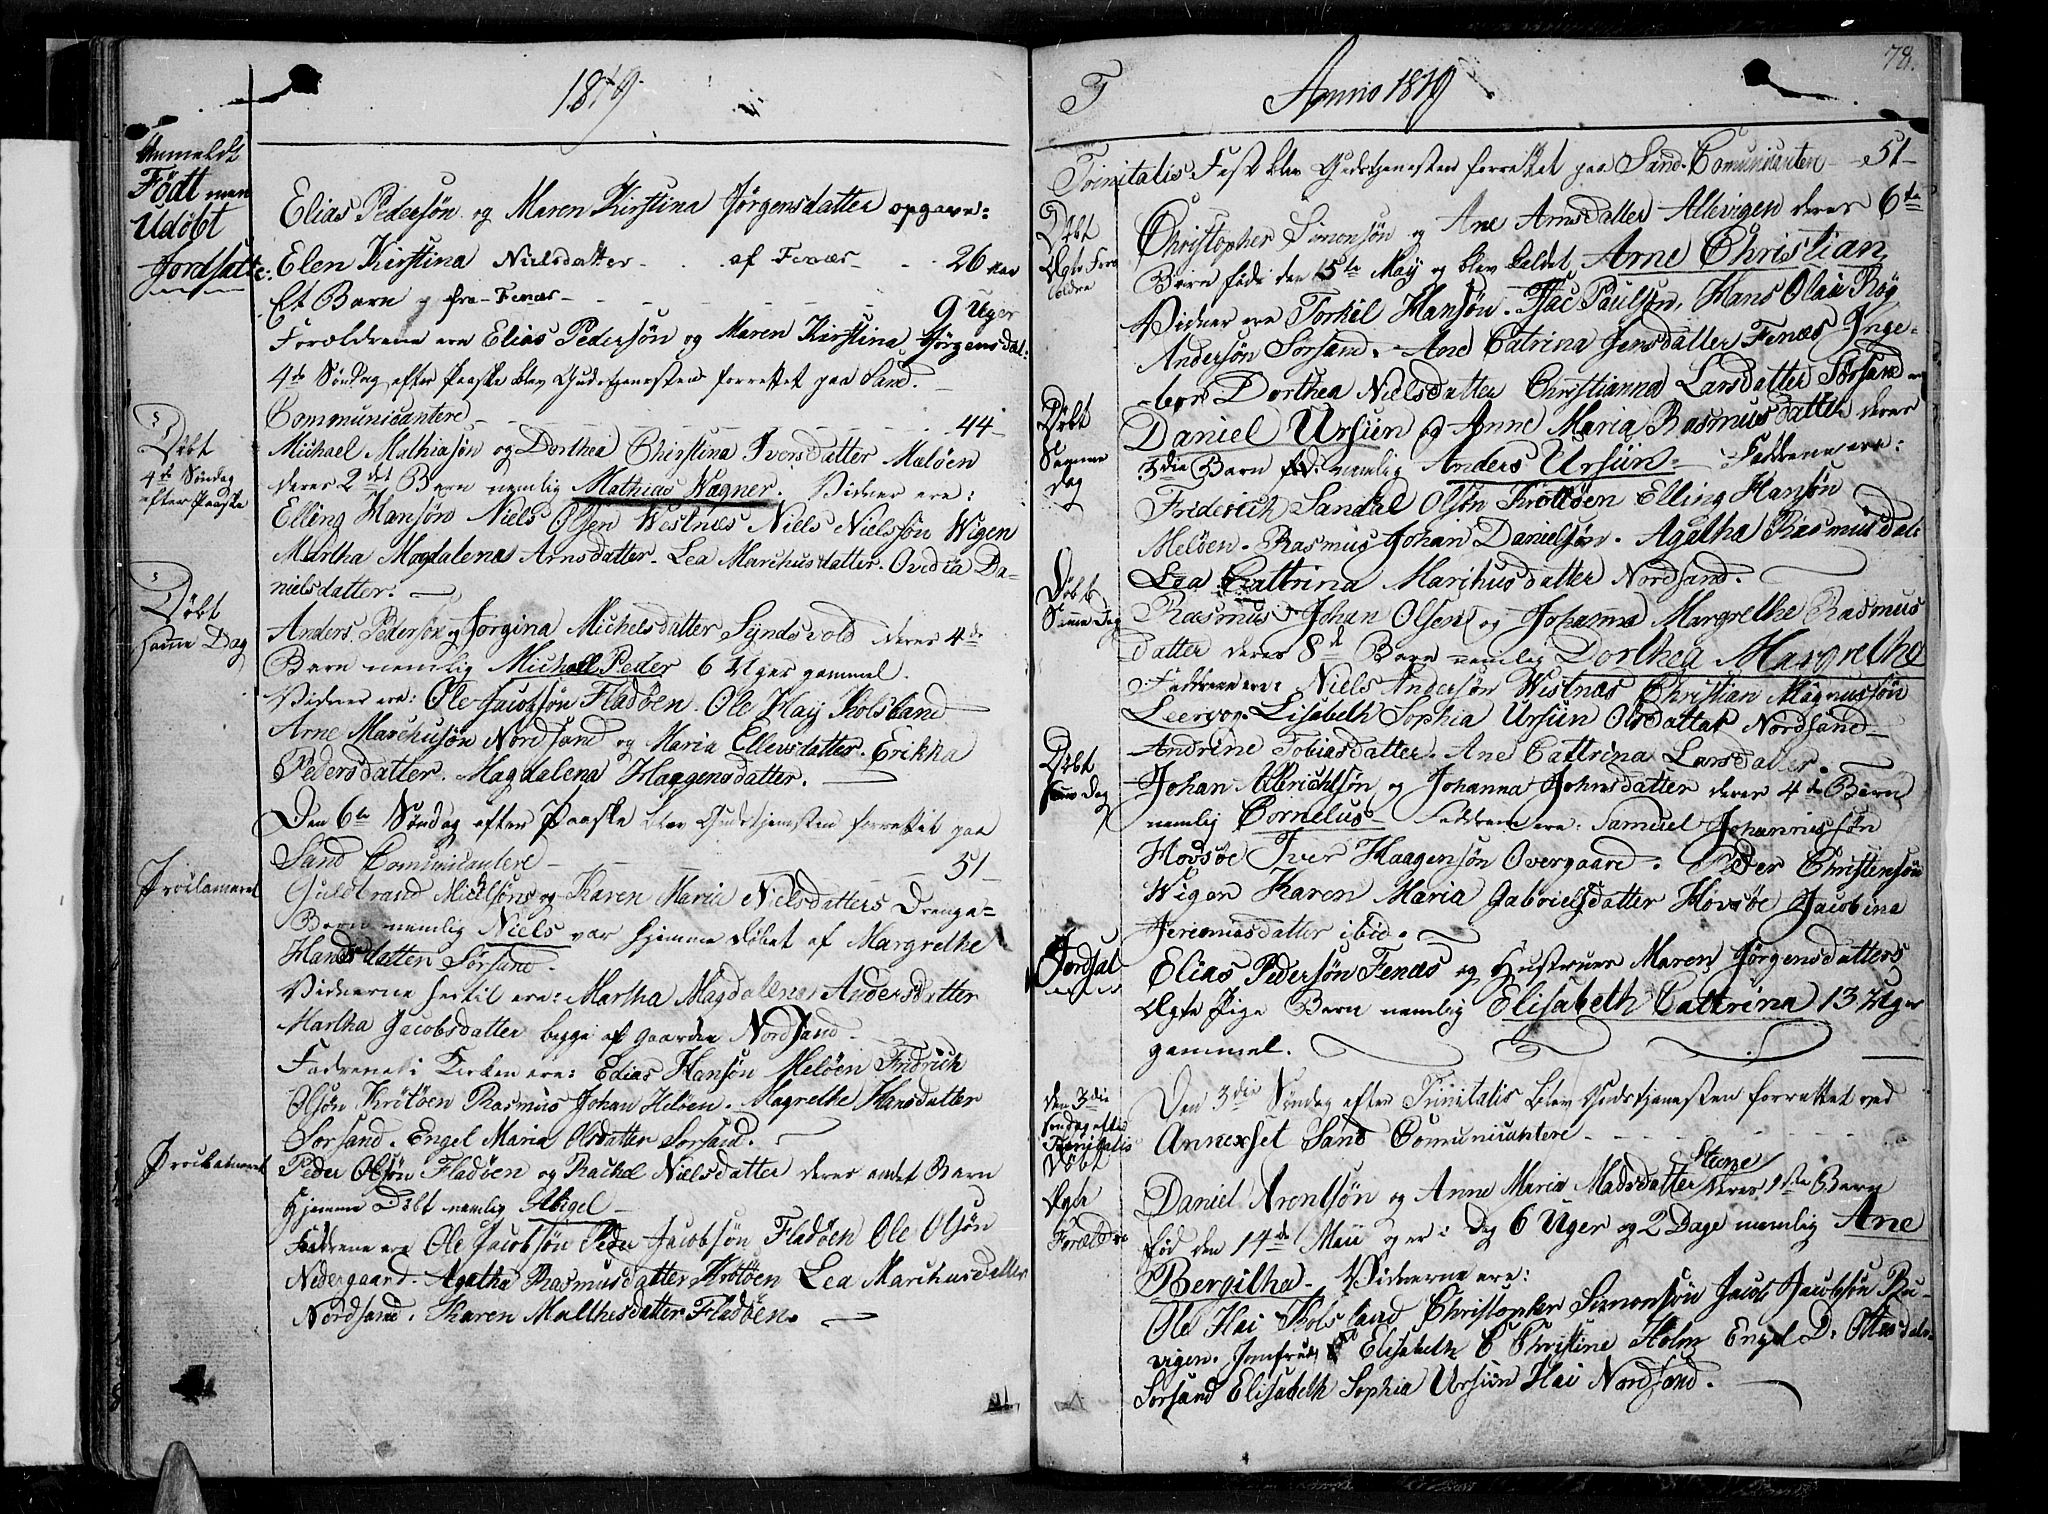 1819.
Anmeldt
Født men
Udøbt
Elias Pedersøn og Maren Kirstina Jørgensdatter opgave:
Jordsatte:
Elen Kirstina Nielsdatter - - af Fenæs - - - 26 Aar
Et Barn fra Fenæs - - - - - - 9 Uger
Forældrene ere Elias Pedersøn og Maren Kirstina Jørgensdat:
4de Søndag efter Paaske blev Gudstjenesten forrettet paa Sand.
Communicantere - - - - - 44-
Døbt
4de Søndag
efter Paaske
Michael Mathiasøn og Dorthea Chirstina Iversdatter Meløen
deres 2det Barn nemlig Mathias Wagner. Vidner ere:
Elling Hansøn Niels Olsen Westnæs Niels Nielssøn Wigen
Martha Magdalena Arnsdatter. Lea Marchusdatter. Ovedia Da=
nielsdatter.
Døbt
samme Dag
Anders Pedersøn og Jorgina Michelsdatter Syndsvold deres 4de
Barn nemlig Michael Peder 6 Uger gammel.
Vidner ere: Ole Jacobsøn Fladøen. Ole Hay Kolsland
Arne Marchusøn Nordsand og Maria Ellevsdatter. Erikka
Pedersdatter. Magdalena Haagensdatter.
Den 6te Søndag efter Paaske blev Gudstjenesten forrettet paa
Sand Comunicantere - - - 51-
Proclameret
Guldbrand Michelsøns og Karen Maria Nielsdatters Drenge=
Barn nemlig Niels var hjemme døbet af Margrethe
Hansdatter Sørsand.
Vidnerne hertil ere: Martha Magdalena Andersdatter
Martha Jacobsdatter begge af Gaarden Nordsand.
Faddrene i Kirken ere: Edias Hansøn Meløen Fridrich
Olsøn Krøtøen Rasmus Johan Meløen. Magrethe Hansdatter
Sorsand. Engel Maria Olsdatter Sorsand.
Proclameret
Peder Olsøn Fladøen og Rachel Nielsdatter deres andet Barn
hjemme Døbt nemlig Abigel
Faddrene ere Ole Jacobsøn Peder Jacobsøn Fladøen Ole Olsøn
Nedergaard. Agatha Rasmusdatter Krøtøen Lea Marchusdatter
Nordsand. Karen Malthesdatter Fladøen.
78.
Anno 1819
Trinitatis Fest blev Gudstjenesten forrettet paa Sand. Comunicanter - 51-
Døbt
Ægte Foræ
ldre
Christopher Simonsøn og Ane Arnsdatter Allevigen deres 6te
Barn født den 15te May og blev kaldet Arne Christian
Vidner ere Torkel Hansøn. Isac Paulsøn, Hans Olaii Røg
Andersøn Sørsand. Ane Catrina Jensdatter Fenæs Inge=
bor Dorthea Nielsdatter Christianna Larsdatter Sørsand
Døbt
Samme
dag
Daniel Ursin og Anne Maria Rasmusdatter deres
3die Barn nemlig Anders Ursin. Faddrene ere:
Friderich Sandal Olsøn Krøttøen Elling Hansøn
Meløen. Rasmus Johan Danielsøn. Agatha Rasmusdat:
Lea Cattrina Marchusdatter Nordsand.
Døbt
Samme Dag
Rasmus Johan Olsen og Johanna Margrethe Rasmus
datter deres 8de Barn nemlig Dorthea Margrethe
Faddrene ere: Niels Andersøn Westnæs Christian Magnussøn
Leervog. Lisabeth Sophia Ursin Olsdatter Nordsand
Andrine Tobiasdatter. Ane Cattrina Larsdatter.
Døbt
samme Dag
Johan Albrichtsøn og Johanna Johnsdatter deres 4de Barn
nemlig Cornelus Faddrene ere: Samuel Johannessøn
Hovsøe Iver Haagensøn Overgaard. Peder Christensøn
Wigen Karen Maria Gabrielsdatter Hovsøe Jacobina
Jeremiasdatter ibid.
Jordsat
Elias Pedersøn Fenæs og Hustrues Maren Jørgensdatters
Ægte Pige Barn nemlig Elisabeth Cattrina 13 Uger
gammel.
Den 3die
Søndag efter
Trinitatis
Døbt
Den 3die Søndag efter Trinitatis blev Gudstjenesten forrettet ved
Annexset Sand Comunicantere - - - - -
Ægte
Forældre
Daniel Arontsøn og Anne Maria Madsdatter Stene deres 1ste Barn
fød den 14de Maii og er i Dag 6 Uger og 2 Dage nemlig Ane
Bergitha. Vidnerne ere:
Ole Hai Kolsland Christopher Simonsøn Jacob Jacobsøn Bu=
vigen. Jomfrue Elisabeth C Christine Holm Engel D: Ottesdatr
Sorsand Elisabeth Sophia Ursin Hai Nordsand.